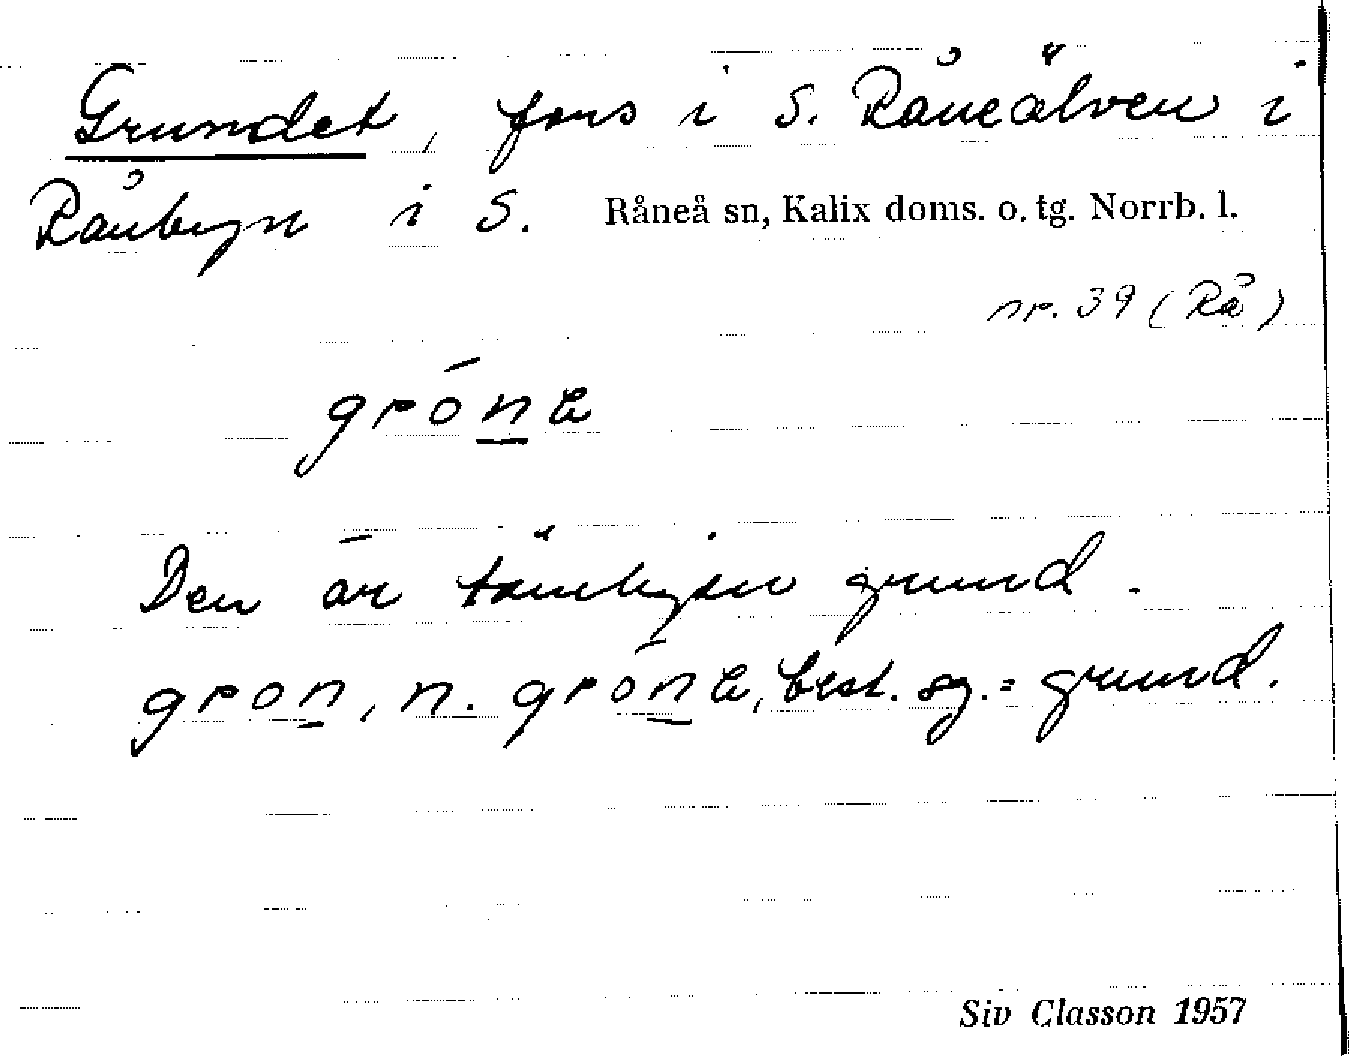 Grundet, fors i S. Råneälven i
Rånbyn i S. Råneå sn, Kalix doms. o. tg. Norrb. l.
nr. 39 (Rå)
gróna
Den är grund.
gron, n. gróna, best. sg. = grund.
Siv Classon 1957